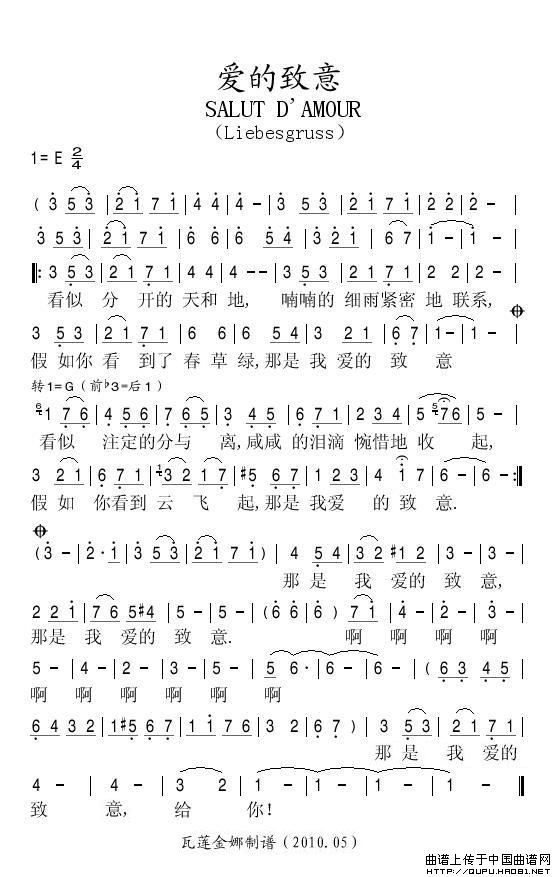 爱的致意
SALUT D'AMOUR
（Liebesgruss）
1=E 2/4
( 3 5 3 | 2 1 7 1 | 4 4 | 4 - | 3 5 3 | 2 1 7 1 | 2 2 | 2 - |
3 5 3 | 2 1 7 1 | 6 6 | 6 5 4 | 3 2 1 | 6 7 | 1 - | 1 - )
‖: 3 5 3 | 2 1 7 1 | 4 4 | 4 - | 3 5 3 | 2 1 7 1 | 2 2 | 2 - |
看似 分 开的 天和 地, 喃喃的 细雨紧密 地 联系,
3 5 3 | 2 1 7 1 | 6 6 | 6 5 4 | 3 2 1 | 6 7 | 1 - | 1 - |
假 如你 看 到了 春 草 绿,那是 我 爱的 致 意
转1=G（前♭3=后1）
6 1 7 6 | 4 5 6 | 7 6 5 | 3 4 5 | 6 7 1 | 2 3 4 | 5 5 7 6 | 5 - |
看似 注定的分与 离,咸咸 的泪滴 惋惜地 收 起,
3 2 1 | 6 7 1 | 1 3 2 1 7 | #5 6 7 | 1 2 3 | 4 1 7 | 6 - | 6 - :‖
假 如 你看到 云 飞 起,那是 我爱 的 致意.
( 3 - | 2· 1 | 3 5 3 | 2 1 7 1 ) | 4 5 4 | 3 2 #1 2 | 3 - | 3 - |
那 是 我 爱的 致 意,
2 2 1 | 7 6 5 #4 | 5 - | 5 - | ( 6 6 | 6 5 ) | 7 1 | 4 - | 4 - |
那是 我 爱的 致 意. 啊 啊 啊 啊
5 - | 4 - | 2 - | 3 - | 5 - | 5 6· | 6 - | 6 - | ( 6 3 4 5 |
啊 啊 啊 啊 啊 啊
6 4 3 2 | 1 #5 6 7 | 1 1 7 6 | 3 2 | 6 7 ) | 3 5 3 | 2 1 7 1 |
那 是 我 爱的
4 - | 4 - | 3 2 | 1 - | 1 - | 1 - | 1 - ‖
致 意, 给 你!
瓦莲金娜制谱（2010.05）
曲谱上传于中国曲谱网
HTTP://QUPU.HAO81.NET